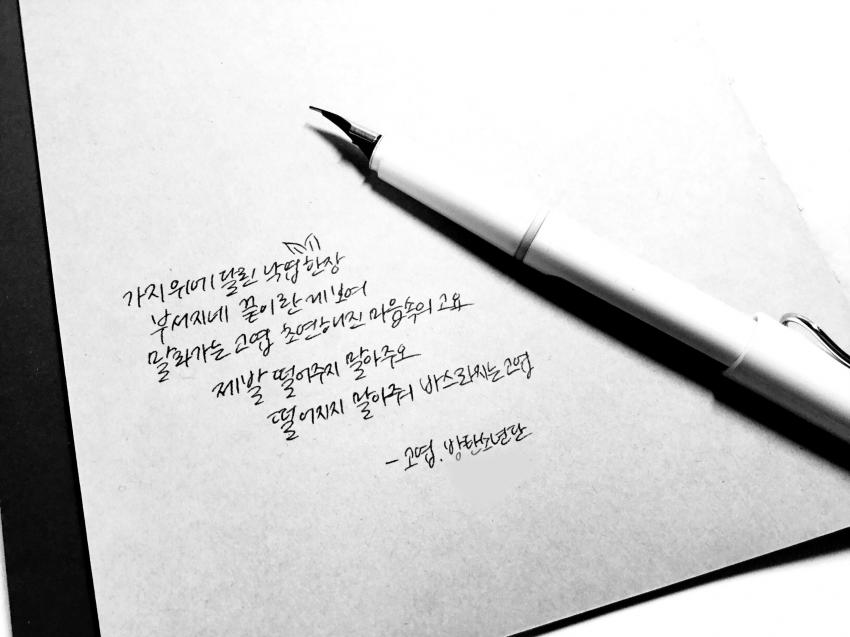 가지 위에 달린 낙엽 한장
부서지네 끝이란 게 보여
말라가는 고엽 초연해진 마음속의 고요
제발 떨어주지 말아주오
떨어지지 말아줘 바스라지는 고엽
- 고엽. 방탄소년단